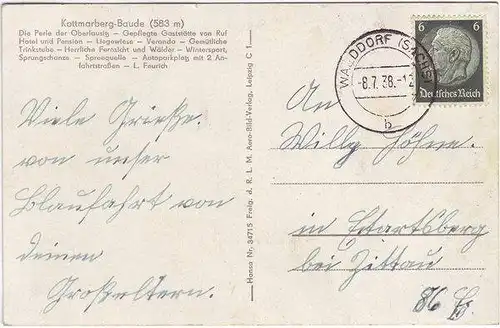 Kottmarberg-Baude (583 m)
Die Perle der Oberlausitz — Gepflegte Gaststätte von Ruf
Hotel und Pension — Liegewiese — Veranda — Gemütliche
Trinkstube — Herrliche Fernsicht und Wälder — Wintersport,
Sprungschanze — Spreequelle — Autoparkplatz mit 2 An-
fahrtstraßen — L. Feurich
Viele Grüße
von unser
Blaufahrt von
deinen
Großeltern.
Hansa Nr. 34715 Freig. d. R. L. M. Aero-Bild-Verlag, Leipzig C 1
WALDDORF (SACHS)
-8.7.38.-12
b
6 6
Deutsches Reich
An
Willy Höhne.
in Eckartsberg
bei Zittau
86